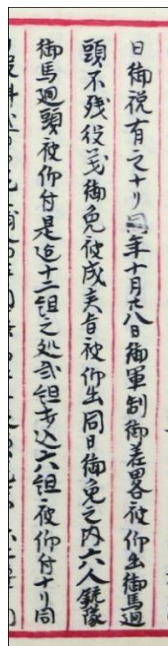 日御説有之ナリ同年十月廿八日御軍制御差略被仰出御馬廻
頭不残役義御免被成美旨被仰出同日御免之内六人銃隊
御馬廻頭被仰付是迠十二組之処弐組歩込六組被仰付ナリ同